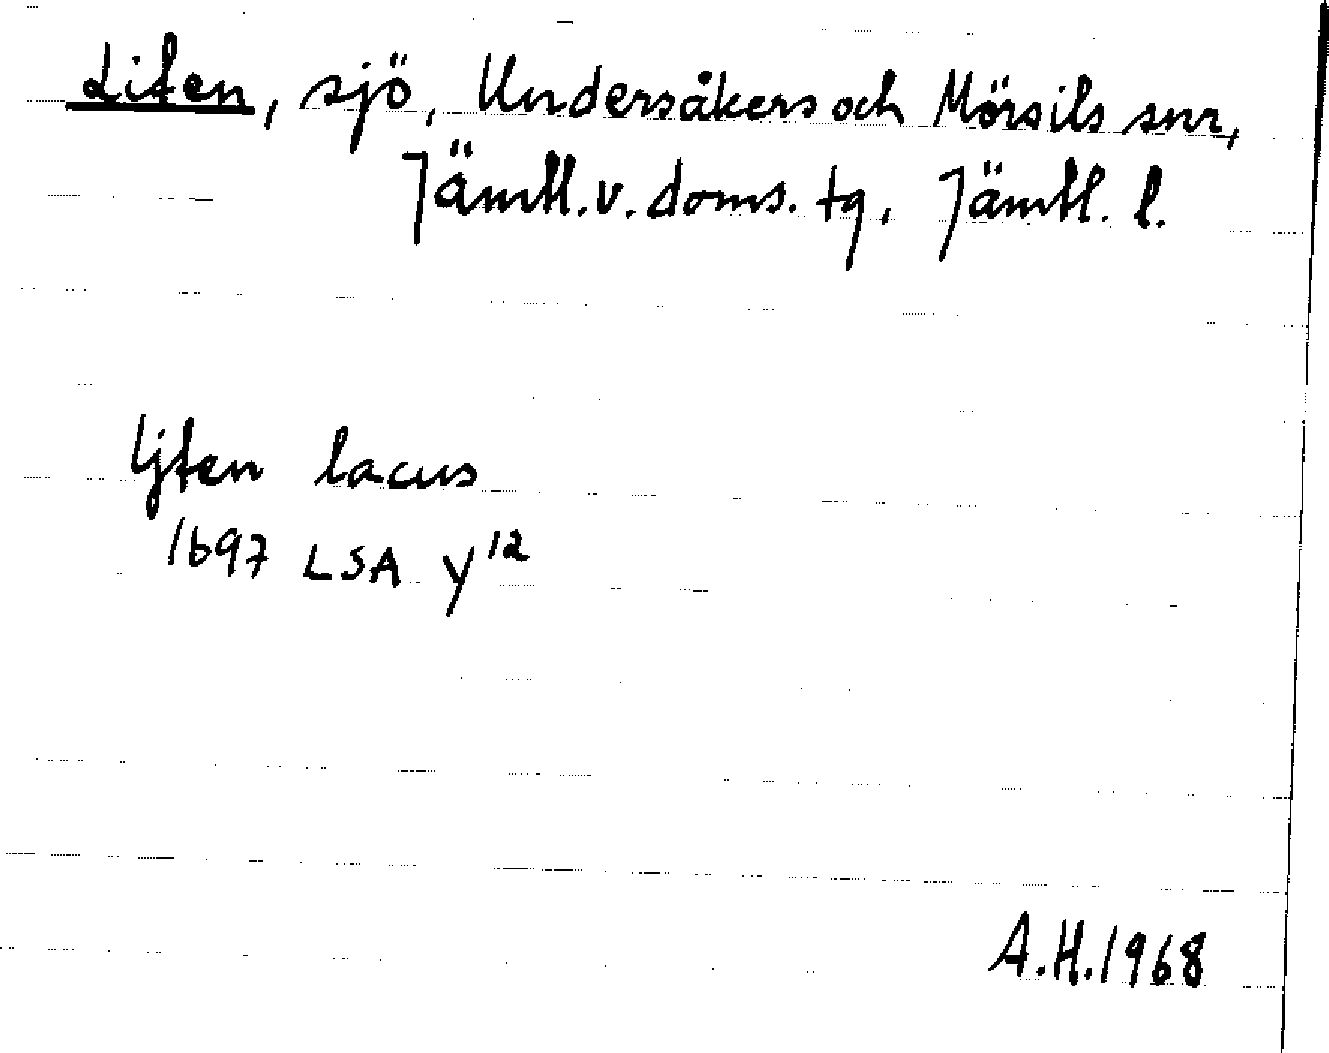 Liten, sjö, Undersåkers och Mörsils snr,
Jämtl. v. doms. tg, Jämtl. l.
Ljten lacus
1697 LSA y¹²
A.H. 1968